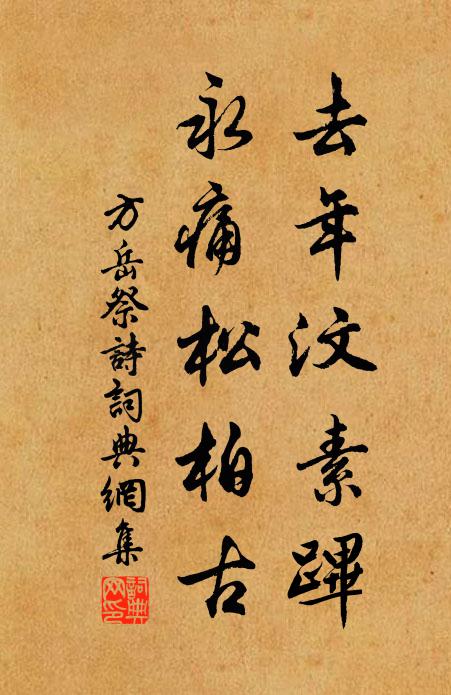 去年汶素蹕
永痛松柏古
方岳祭詩詞典網集
詞典网印